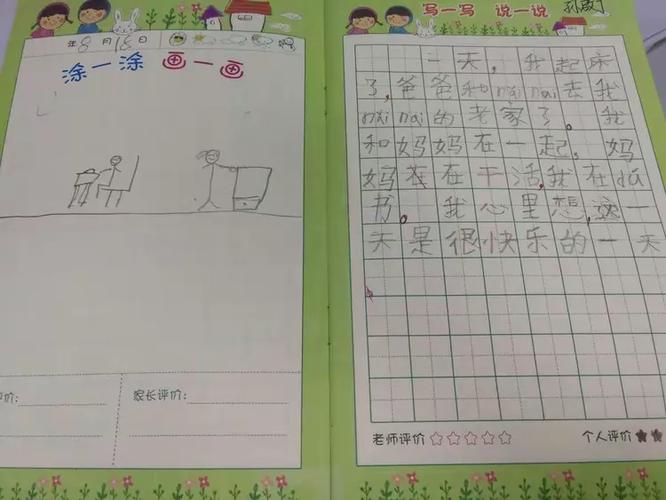 年8月18日
涂一涂 画一画
家长评价:
写一写 说一说
一天,我起床
了,爸爸和nǎi nai去我
nǎi nai的老家了。我
和妈妈在一起,妈
妈在在干活,我在dú
书。我心里想,这一
天是很快乐的一天
老师评价
个人评价